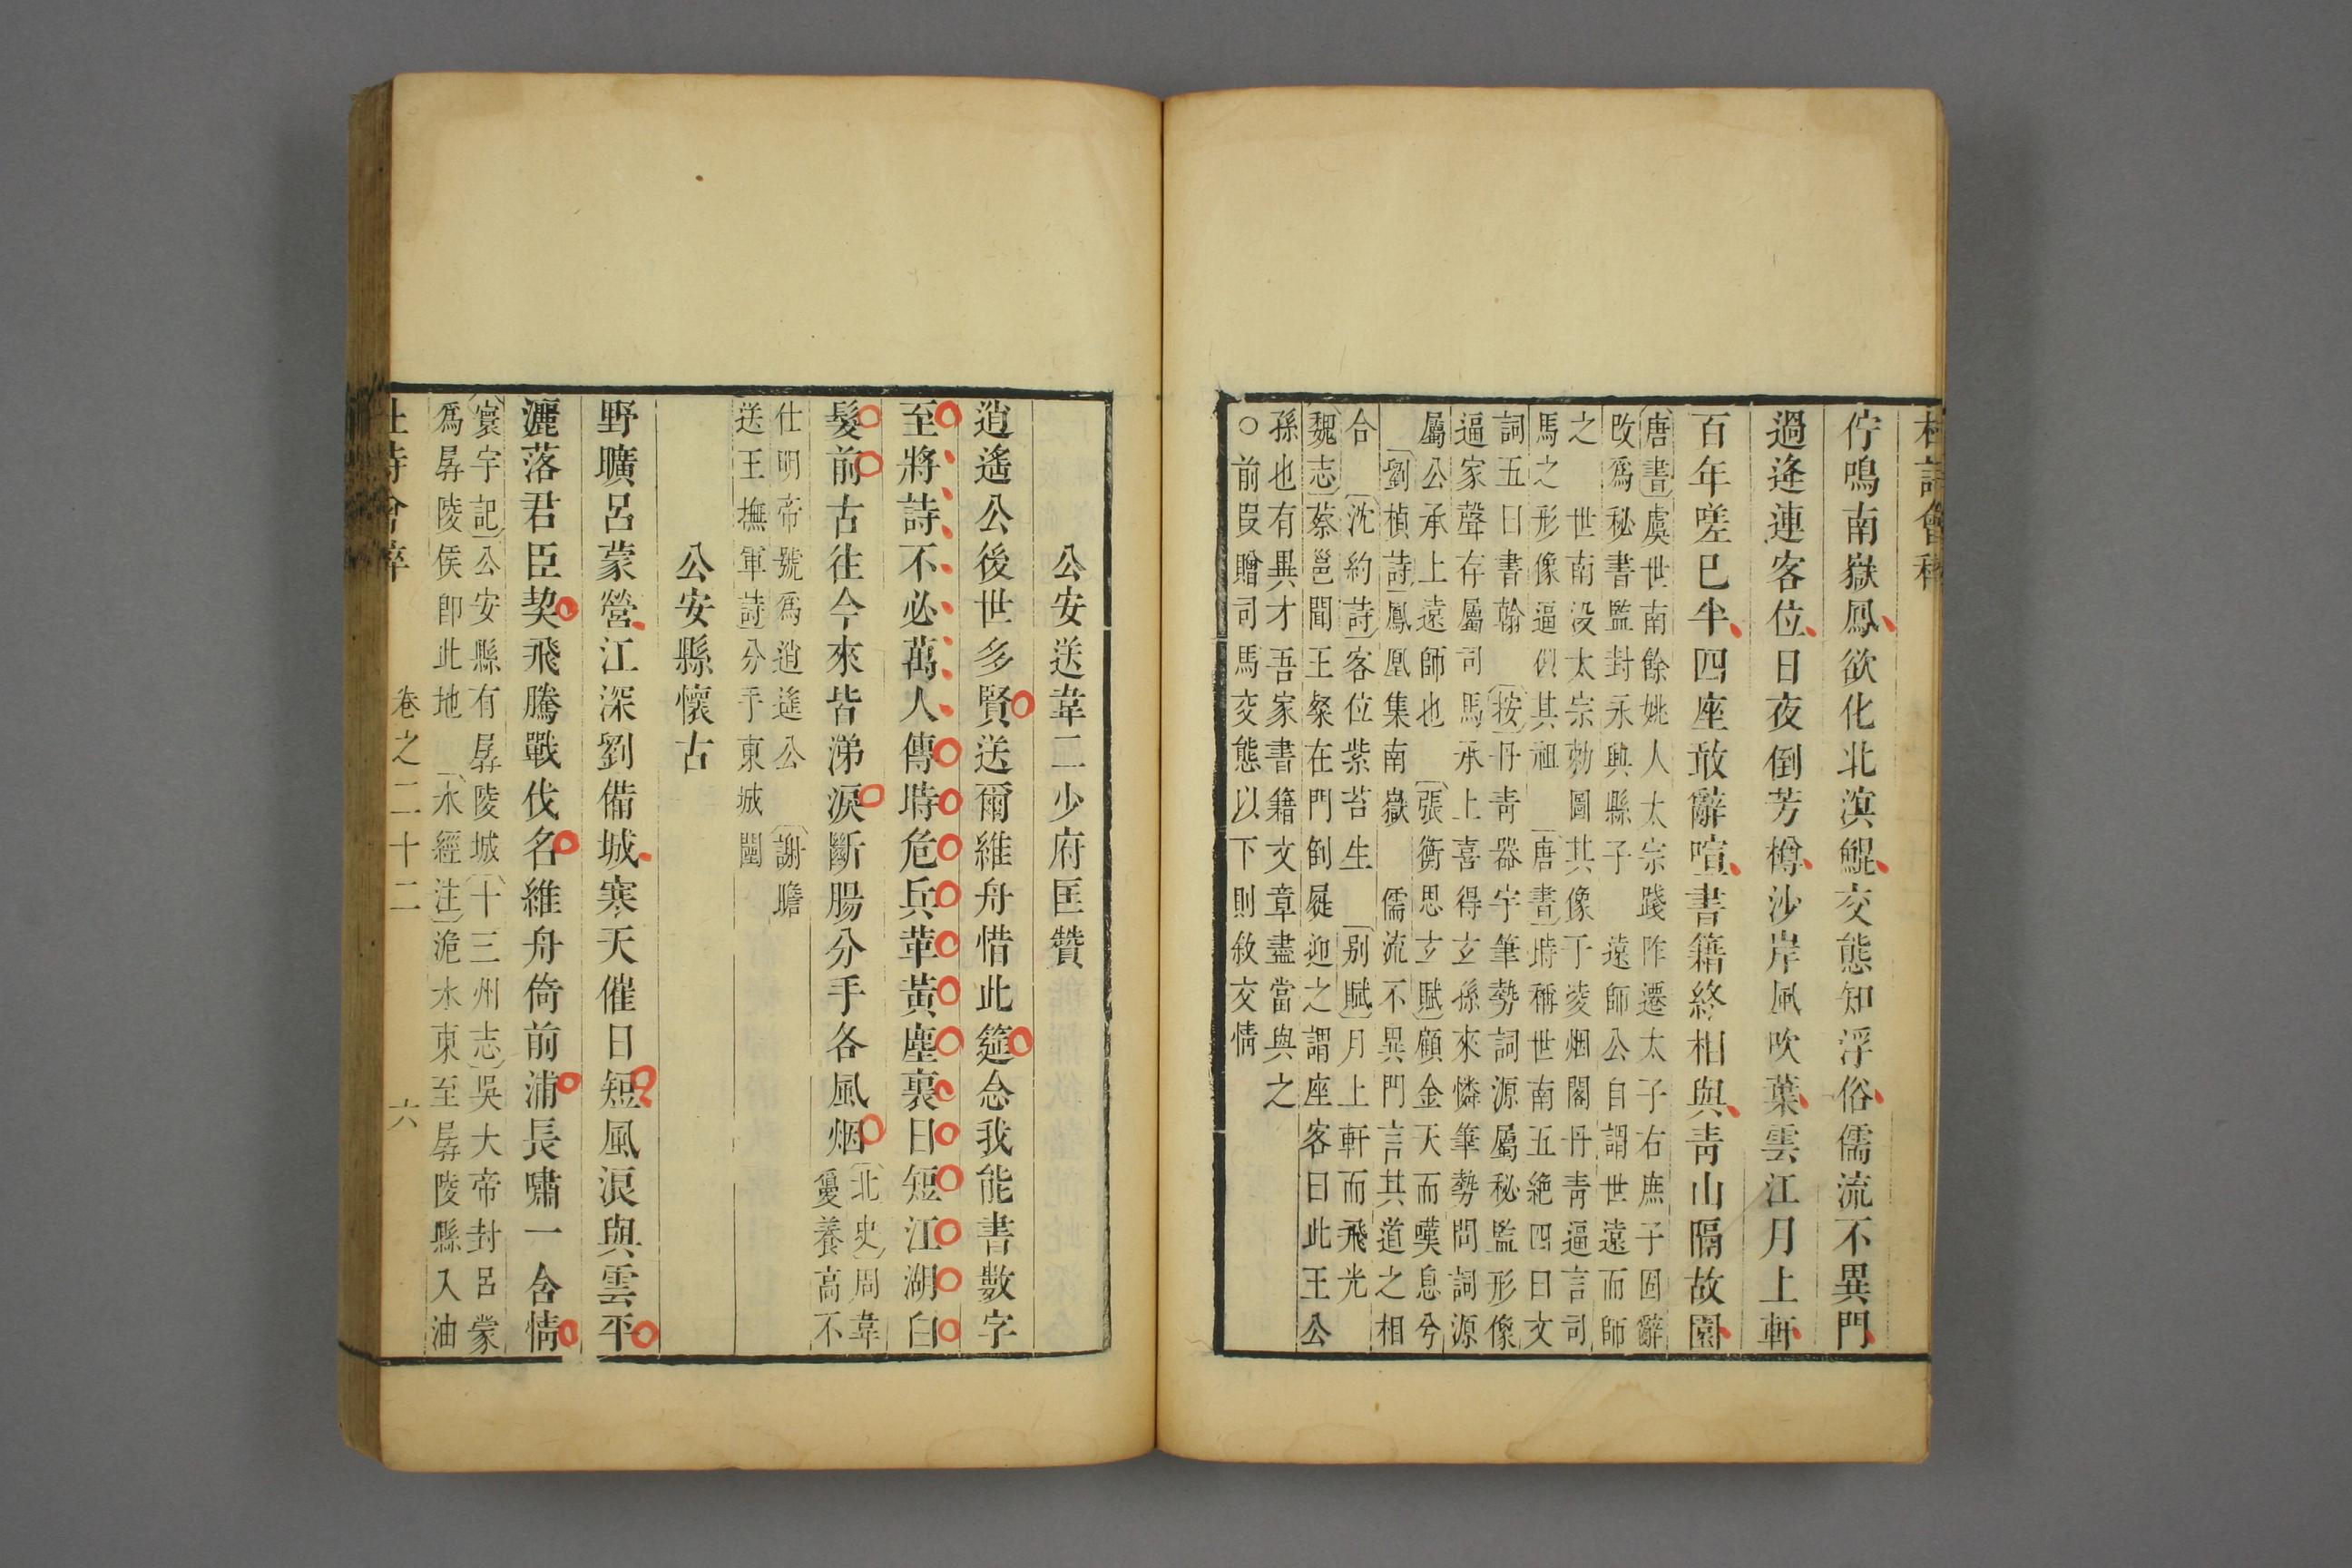 杜詩會稡
佇鳴南嶽鳳欲化北溟鯤交態知浮俗儒流不異門
過逢連客位日夜倒芳樽沙岸風吹葉雲江月上軒
百年嗟已半四座敢辭喧書籍終相與靑山隔故園
〔唐書〕虞世南餘姚人太宗踐阼遷太子右庶子固辭
改爲秘書監封永興縣子 遠師公自謂世遠而師
之 世南没太宗勅圖其像于凌烟閣丹靑逼言司
馬之形像逼似其祖 〔唐書〕時稱世南五絶四曰文
詞五曰書翰 〔按〕丹靑器宇筆勢詞源屬秘監形像
逼家聲存屬司馬承上喜得玄孫來憐筆勢問詞源
屬公承上遠師也 〔張衡思玄賦〕顧金天而嘆息兮
〔劉楨詩〕鳳凰集南嶽 儒流不異門言其道之相
合 〔沈約詩〕客位紫苔生 〔别賦〕月上軒而飛光
〔魏志〕蔡邕聞王粲在門倒屣迎之謂座客曰此王公
孫也有異才吾家書籍文章盡當與之
○前叚贈司馬交態以下則敘交情
公安送韋二少府匡贊
逍遙公後世多賢送爾維舟惜此筵念我能書數字
至將詩不必萬人傳時危兵革黃塵裏日短江湖白
髮前古往今來皆涕淚斷腸分手各風烟
〔北史〕周韋
敻養高不
仕明帝號爲逍遙公 〔謝瞻
送王撫軍詩〕分手東城闉
公安縣懷古
野曠呂蒙營江深劉備城寒天催日短風浪與雲平
灑落君臣契飛騰戰伐名維舟倚前浦長嘯一含情
〔寰宇記〕公安縣有孱陵城〔十三州志〕吳大帝封呂蒙
爲孱陵侯卽此地 〔水經注〕洈水東至孱陵縣入油
杜詩會稡 卷之二十二 六